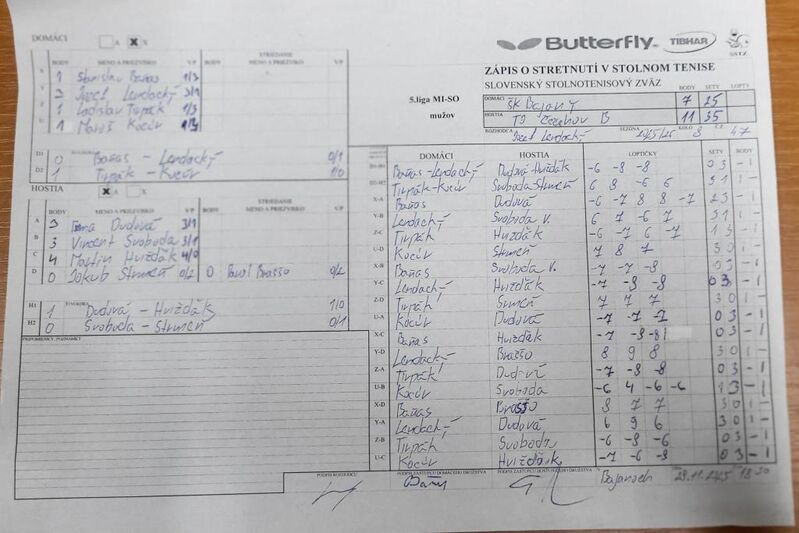 DOMÁCI A X X
BODY MENO A PRIEZVISKO V/P BODY STRIEDANIE MENO A PRIEZVISKO V/P
X 1 Stanislav Baňas 1/3
Y 3 Jozef Lendacký 3/1
Z 1 Ladislav Tirpák 1/3
U 1 Matúš Kocúr 1/3
D1 0 Baňas - Lendacký 0/1
D2 1 Tirpák - Kocúr 1/0
HOSTIA X A X
BODY MENO A PRIEZVISKO V/P BODY STRIEDANIE MENO A PRIEZVISKO V/P
A 3 Ema Dudová 3/1
B 3 Vincent Svoboda 3/1
C 4 Martin Hvižďák 4/0
D 0 Jakub Strmeň 0/2 0 Pavol Brasso 0/2
H1 1 Dudová - Hvižďák 1/0
H2 0 Svoboda - Strmeň 0/1
PRIPOMIENKY, POZNÁMKY
Butterfly TIBHAR SSTZ
ZÁPIS O STRETNUTÍ V STOLNOM TENISE
SLOVENSKÝ STOLNOTENISOVÝ ZVÄZ BODY SETY LOPTY
5.liga MI-SO
mužov
DOMÁCI ŠK Bajany 7 25
HOSTIA B 11 35
ROZHODCA Jozef Lendacký SEZÓNA KOLO 8 47
DOMÁCI HOSTIA LOPTIČKY SETY BODY
D1-H1 Baňas-Lendacký Dudová Hvižďák -6 -8 -8 0 3 - 1
D2-H2 Tirpák-Kocúr Svoboda Strmeň 6 8 -6 6 3 1 1 -
X-A Baňas Dudová -6 -7 8 8 -7 2 3 - 1
Y-B Lendacký Svoboda V. 6 7 -6 7 3 1 1 -
Z-C Tirpák Hvižďák -6 -7 6 -7 1 3 - 1
U-D Kocúr Strmeň 7 8 7 3 0 1 -
X-B Baňas Svoboda V. -7 -7 -8 0 3 - 1
Y-C Lendacký Hvižďák -7 -9 -8 0 3 - 1
Z-D Tirpák Strmeň 7 7 7 3 0 1 -
U-A Kocúr Dudová -7 -7 -7 0 3 - 1
X-C Baňas Hvižďák -7 -9 -8 0 3 - 1
Y-D Lendacký Brasso 8 9 8 3 0 1 -
Z-A Tirpák Dudová -7 -8 -8 0 3 - 1
U-B Kocúr Svoboda -6 4 -6 -6 1 3 - 1
X-D Baňas Brasso 8 7 7 3 0 1 -
Y-A Lendacký Dudová 6 9 6 3 0 1 -
Z-B Tirpák Svoboda -6 -8 -6 0 3 - 1
U-C Kocúr Hvižďák -7 -6 -8 0 3 - 1
PODPIS ROZHODCU PODPIS ZÁSTUPCU DOMÁCEHO DRUŽSTVA PODPIS ZÁSTUPCU HOSŤUJÚCEHO DRUŽSTVA V
Baňas Bajanoch